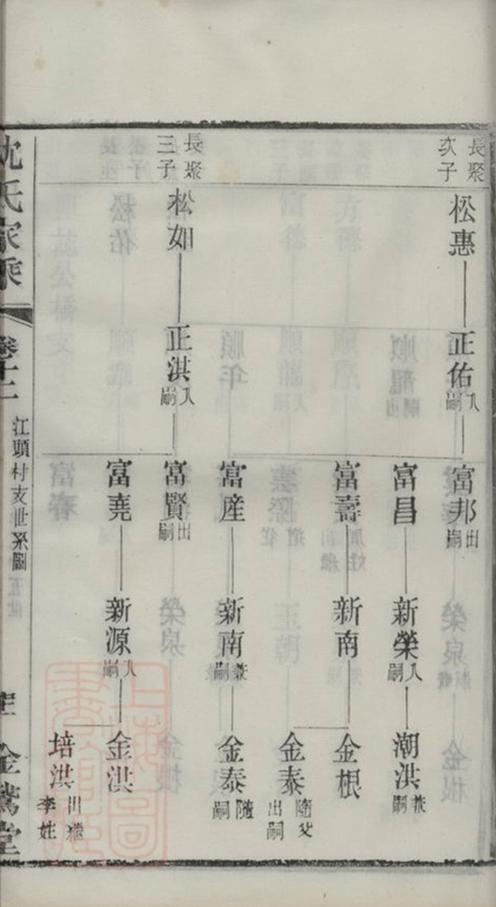 長聚次子
松惠
正佑入嗣
富邦出嗣
富昌
新榮入嗣
潮洪兼嗣
富壽
新南
金根
金泰隨父出嗣
富産
新南兼嗣
金泰隨嗣
長聚三子
松如
正淇入嗣
富賢出嗣
富堯
新源入嗣
金洪
培洪出繼李姓
沈氏家乘
卷十二
江頭村支世系圖
金鵞堂